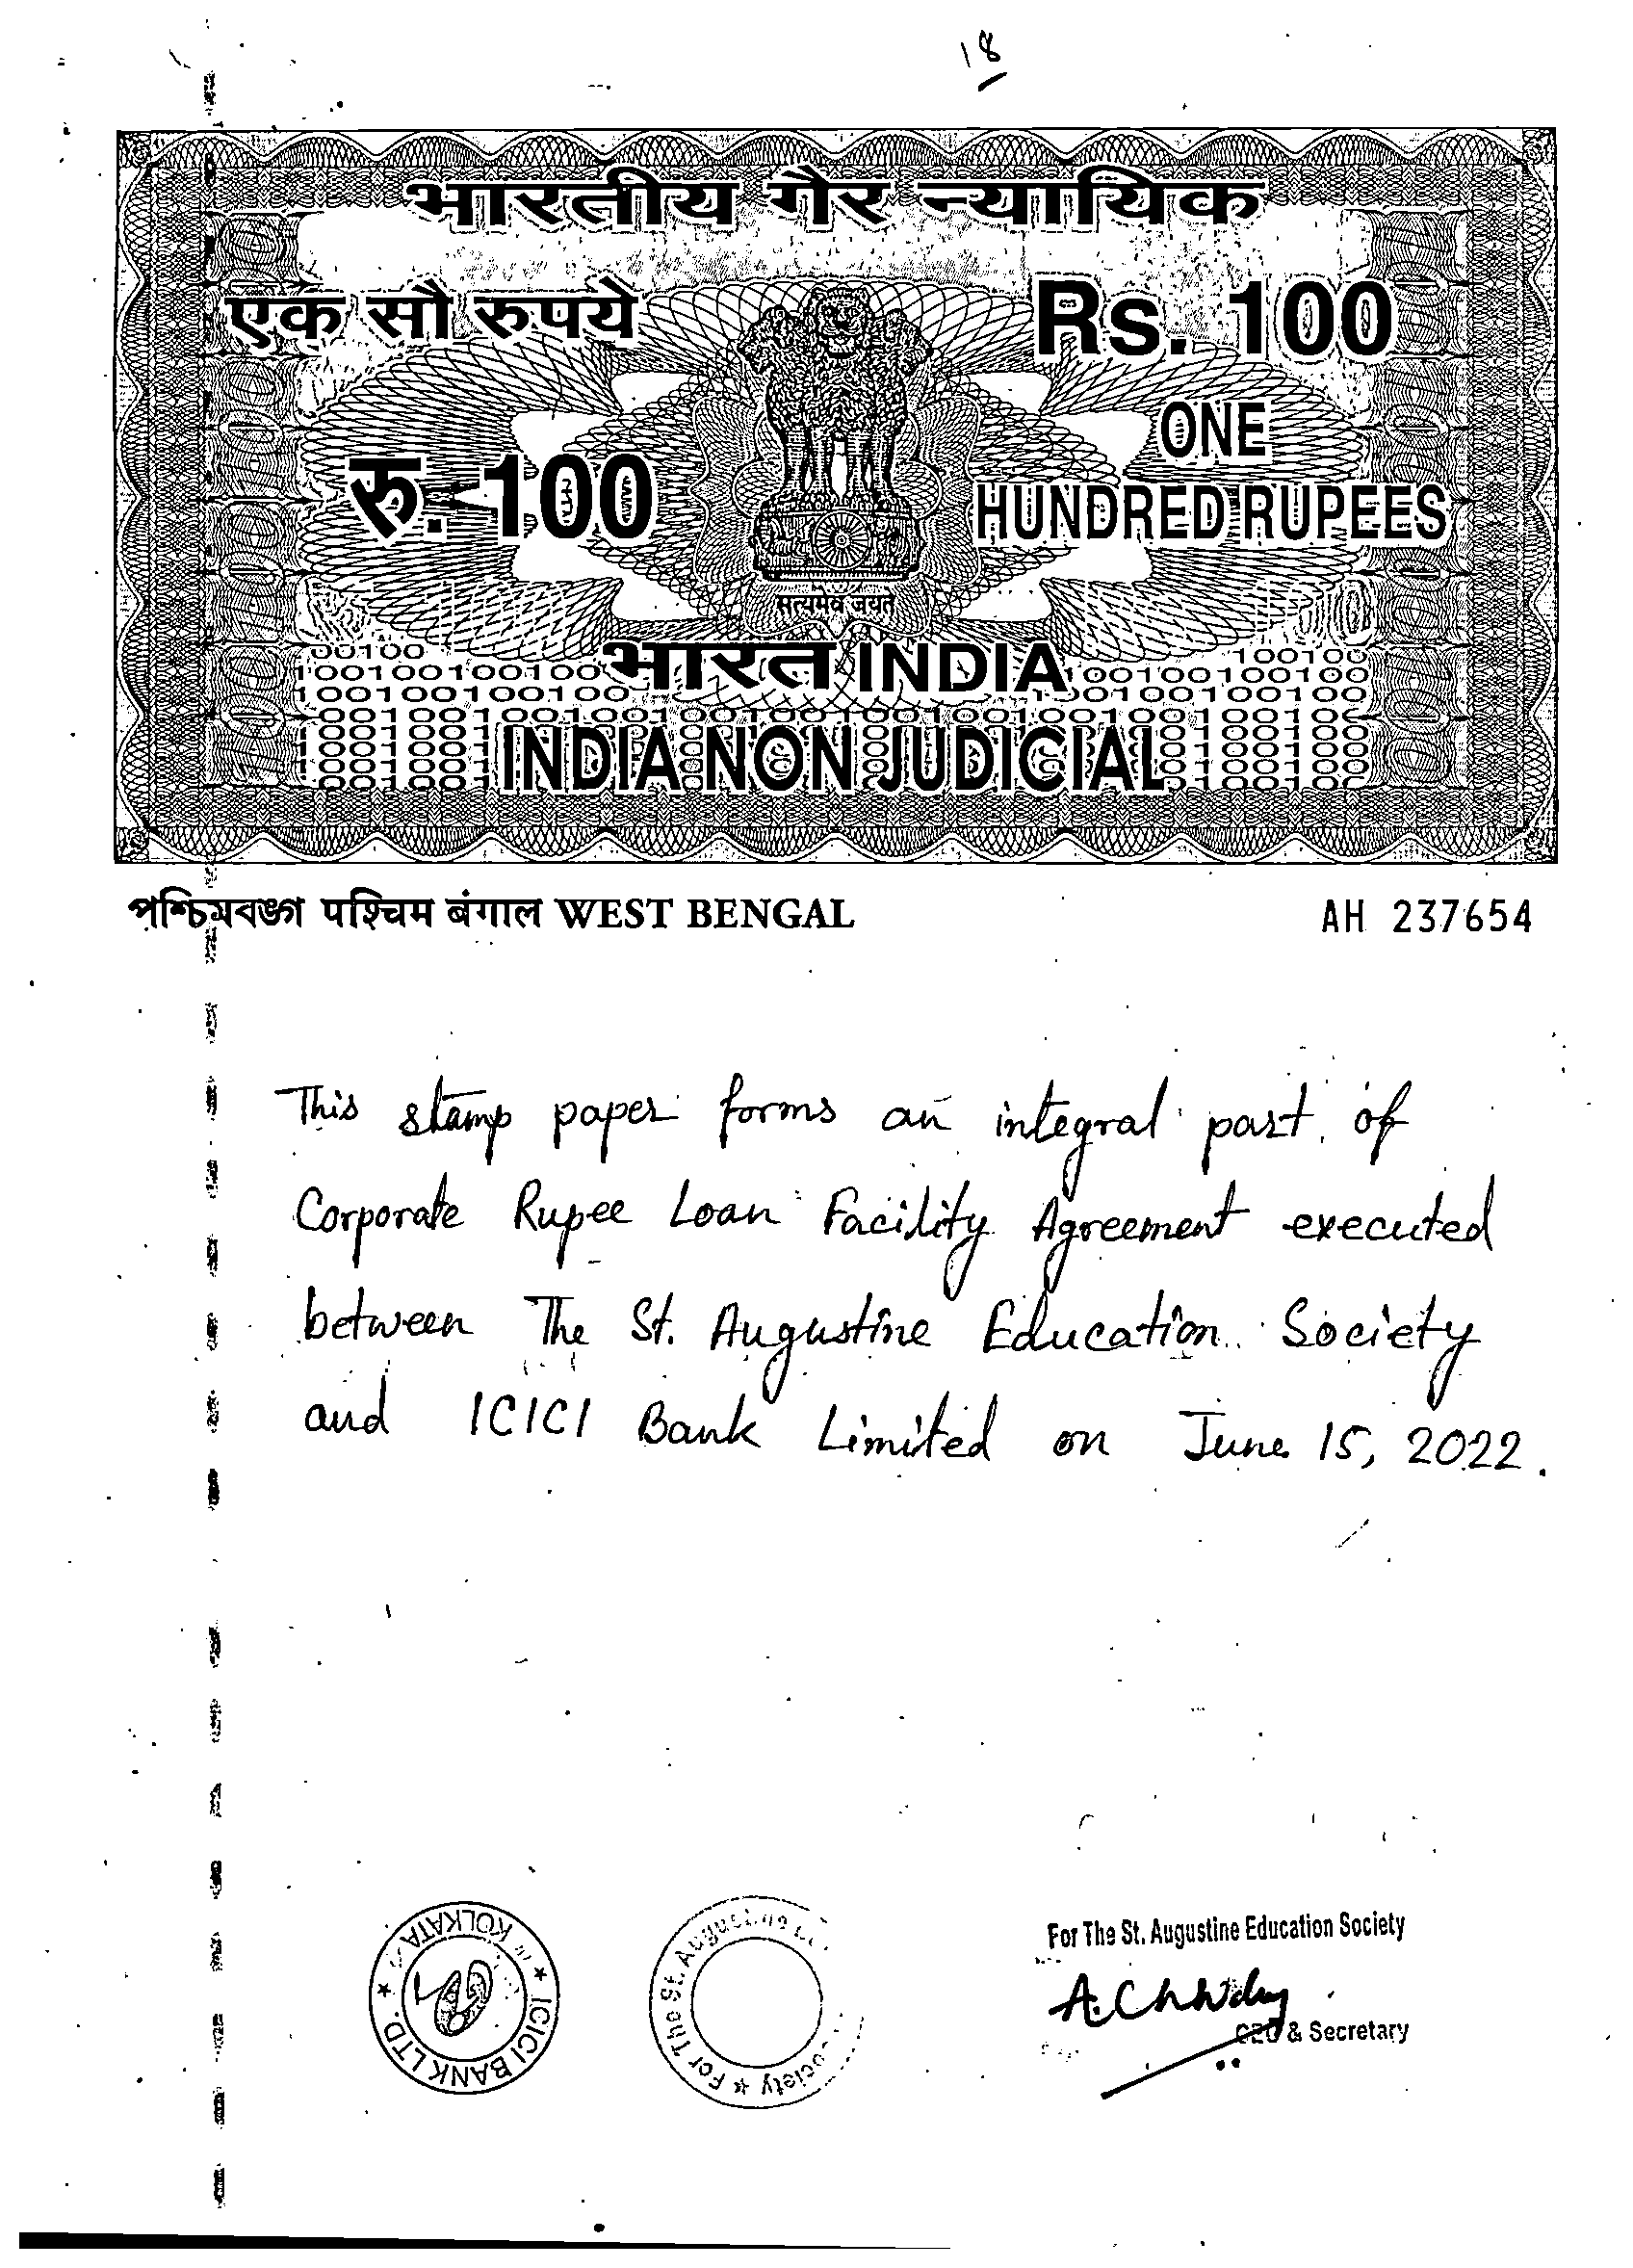 18
भारतीय गैर न्यायिक
एक सौ रुपये
Rs. 100
रु. 100
ONE
HUNDRED RUPEES
सत्यमेव जयते
भारत INDIA
INDIA NON JUDICIAL
পশ্চিমবঙ্গ पश्चिम बंगाल WEST BENGAL
AH 237654
This stamp paper forms an integral part of
Corporate Rupee Loan Facility Agreement executed
between The St. Augustine Education Society
and ICICI Bank Limited on June 15, 2022.
ICICI BANK LTD. ★ KOLKATA ★
For The St. Augustine Society
For The St. Augustine Education Society
CEO & Secretary